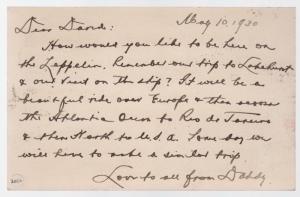 May 10, 1930
Dear David:
How would you like to be here on
the Zeppelin. Remember our trip to Lakehurst
& our visit on the ship? It will be a
beautiful ride over Europe & then across
the Atlantic Ocean to Rio de Janeiro
& then North to U.S.A. Some day we
will have to make a similar trip.
Love to all from Daddy.